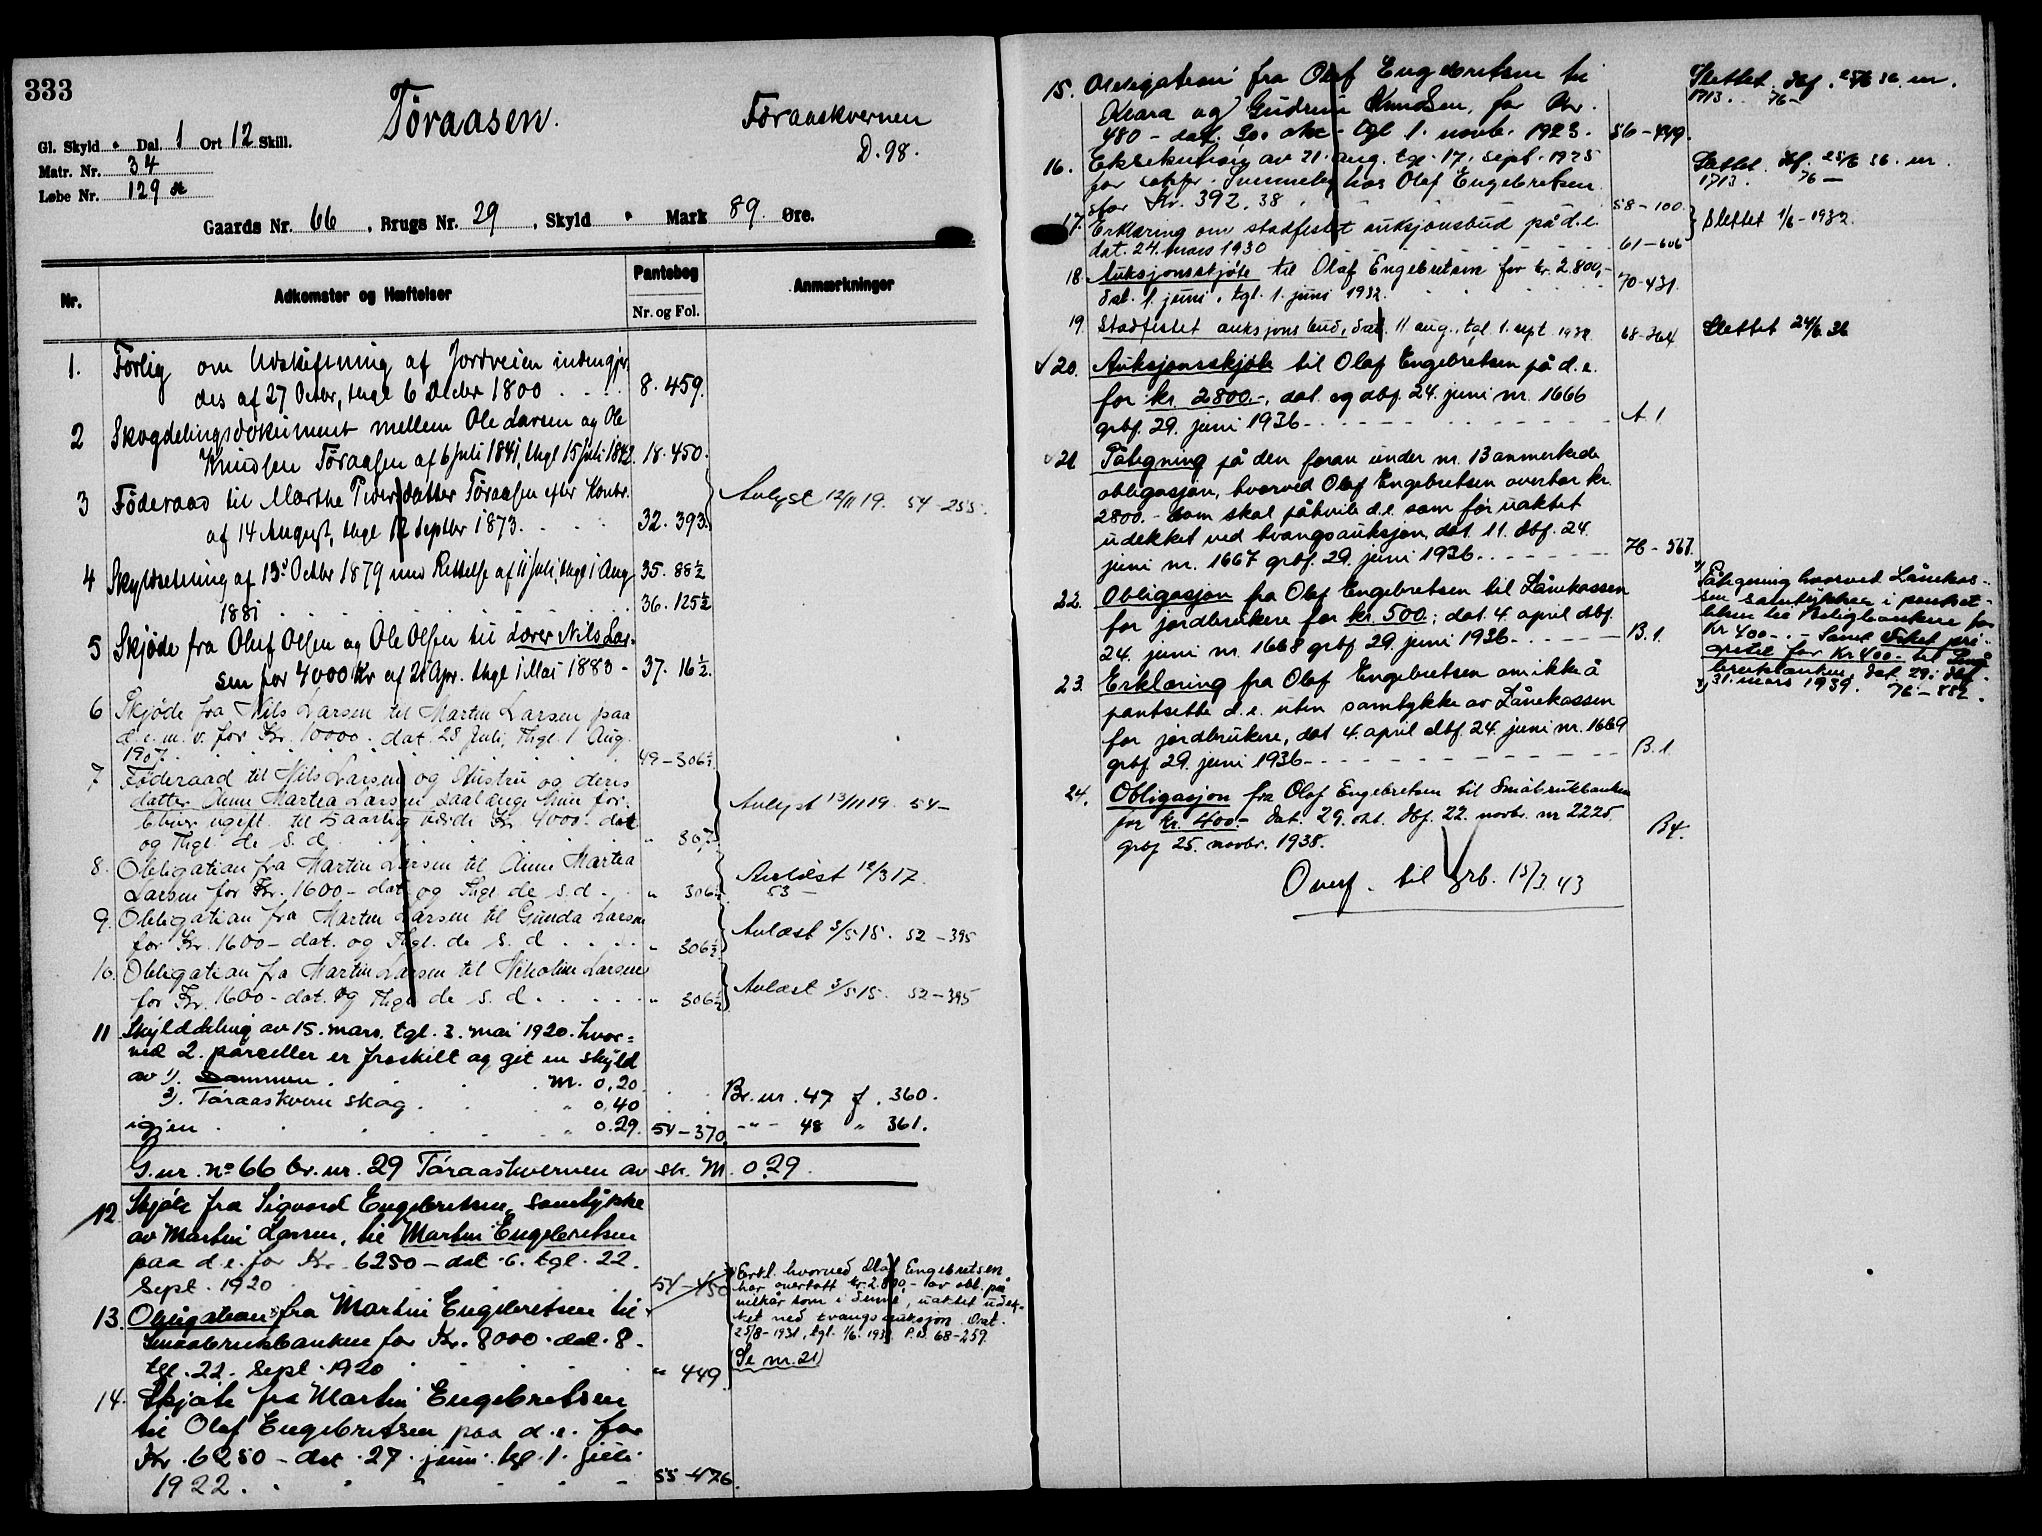 333
Tøraasen.
Tøraaskvernen
D. 98.
Gl. Skyld " Dal. 1 Ort 12 Skill.
Matr. Nr. 34
Løbe Nr. 129
Gaards Nr. 66, Brugs Nr. 29, Skyld " Mark 89 Øre.
Nr. Adkomster og Hæftelser Pantebog Nr. og Fol. Anmærkninger
1. Forlig om Udskiftning af Jordveien indengjer-
des af 27 Octbr, thgl 6 Decbr 1800 . . . . 8. 459.
2 Skogdelingsdokument mellem Ole Larsen og Ole
Knudsen Tøraasen af 6 Juli 1841, thgl 15 Juli 1842. 18. 450.
3 Føderaad til Marthe Pedersdatter Tøraasen efter Kontr.
af 14 August, thgl 12 Septbr 1873. . . . 32. 393. Avlyst 12/11 19. 54-255.
4 Skyldsetning af 13 Octbr 1879 med Rettelse af 11 Juli, thgl 1 Aug 35. 88½
1881 . . . 36. 125½
5 Skjøde fra Oluf Olsen og Ole Olsen til Lærer Nils Lar-
sen for 4000 Kr af 21 Apr. thgl 1 Mai 1883 - 37. 16½.
6 Skjøde fra Nils Larsen til Martin Larsen paa
d. e. m. v. for Kr. 10000. dat. 28 Juli, Thgl. 1 Aug.
1907. . . . 49-306½.
7 Føderaad til Nils Larsen og Hustru og deres
datter Anne Martea Larsen saalænge hun for-
bliver ugift til 5 aarlig værdi Kr. 4000. dat.
og Thgl. de s. d. . . . " 307. Avlyst 13/11 19. 54-
8. Obligation fra Martin Larsen til Anne Martea
Larsen for Kr. 1600 - dat. og Thgl. de s. d. . " 306½ Avlæst 12/3 17.
53-
9. Obligation fra Martin Larsen til Gunda Larsen
for Kr. 1600 - dat. og Thgl. de s. d. . . . " 306½ Avlæst 3/5 15. 52-395
10. Obligation fra Martin Larsen til Nikoline Larsen
for Kr. 1600 - dat. og Thgl. de s. d. . . . " 306½ Avlæst 3/5 15. 52-395
11 Skylddeling av 15. mars, tgl. 3. mai 1920. hvor=
ved 2. parceller er fraskilt og git en skyld
av 1). Dammen . . . M. 0,20 . . Br. nr. 47 f. 360.
2). Tøraaskvern skog . . " 0,40 . .
igjen . . . " 0.29. 54-370. -"- 48 " 361.
G. nr. no 66 br. nr. 29 Tøraaskvernen av sk. M. 0.29.
12 Skjøte fra Sigvard Engebretsen, samtykke
av Martin Larsen, til Martin Engebretsen
paa d. e. for Kr. 6250 - dat. 6. tgl. 22.
Sept. 1920 54-450
13. Obligation fra Martin Engebretsen til
Smaabrukbanken for Kr. 8000. dat. 8.
tgl. 22. Sept. 1920 . . . " 449
Erkl. hvorved Olaf Engebretsen
har overtatt kr. 2.800 - av obl. på
vilkår som i denne, uaktet udek-
ket ved tvangsauksjon. Dat.
25/8-1931, tgl. 1/6. 1932 P.B. 68-259.
(Se nr. 21)
14. Skjøte fra Martin Engebretsen
til Olaf Engebretsen paa d. e. for
Kr. 6250 - dat. 27. juni tgl. 1. juli
1922. . . . 55-476.
15. Obligation fra Olaf Engebretsen til
Klara og Gudrun Knudsen, for Kr.
480 - dat. 30. okt. tgl 1. novb. 1923. 56-449. Slettet. dbf. 25/6 36. nr.
1713. 76-
16. Eksekution av 21. aug. tgl. 17. sept. 1925
for Svenneby hos Olaf Engebretsen
for Kr. 392,38 . . 58-100. Slettet. dbf. 25/6 36. nr.
1713. 76-
17. Erklæring om stadfestet auksjonsbud på d. e.
dat. 24. mars 1930 . . . 61-606 Slettet 1/6-1932.
18. Auksjonsskjøte til Olaf Engebretsen for kr. 2.800,-
dat. 1. juni, tgl. 1. juni 1932. . . . 70-431.
19. Stadfestet auksjonsbud, dat. 11 aug., tgl. 1. sept 1932 68-364 Slettet 24/6 36
✓20. Auksjonsskjøte til Olaf Engebretsen på d. e.
for kr. 2800.-, dat. og dbf. 24. juni nr. 1666
grbf. 29. juni 1936 - - - - A. 1
✓21 Påtegning på den foran under nr. 13 anmerkede
obligasjon, hvorved Olaf Engebretsen overtar kr.
2800.- som skal påhvile d. e. som før uaktet
udekket ved tvangsauksjon, dat. 11. dbf. 24.
juni nr. 1667 grbf. 29. juni 1936. - - - 76-567.
22. Obligasjon fra Olaf Engebretsen til Lånekassen
for jordbrukere for kr. 500.; dat. 4. april dbf.
24. juni nr. 1668 grbf 29. juni 1936 - - - B. 1.
1) Påtegning hvorved Lånekas-
sen samtykker i
Kr 400 - . - Samt viket pri-
oritet for Kr 400.- til Små-
brukbanken, dat. 29. dbf.
31. mars 1939. 76-882.
23. Erklæring fra Olaf Engebretsen om ikke å
pantsette d. e. uten samtykke av Lånekassen
for jordbrukere, dat 4. april dbf. 24. juni nr. 1669
grbf 29. juni 1936 - - - B. 1.
24. Obligasjon fra Olaf Engebretsen til Småbrukbanken
for kr. 400.- dat. 29. okt. dbf. 22. novbr. nr 2225
grbf 25. novbr. 1938. B 4.
Overf. til grb. 15/3 43